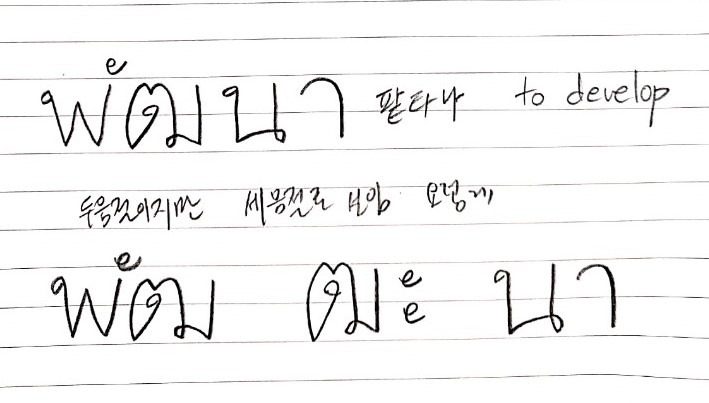 พัฒนา 팥타나 to develop
두음절이지만 세음절로 보임 요렇게
พัฒ ฒะ นา